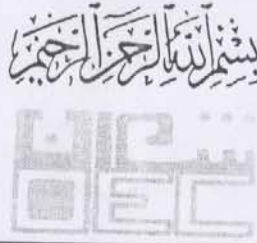 بِسْمِ اللَّهِ الرَّحْمَنِ الرَّحِيمِ
OEC